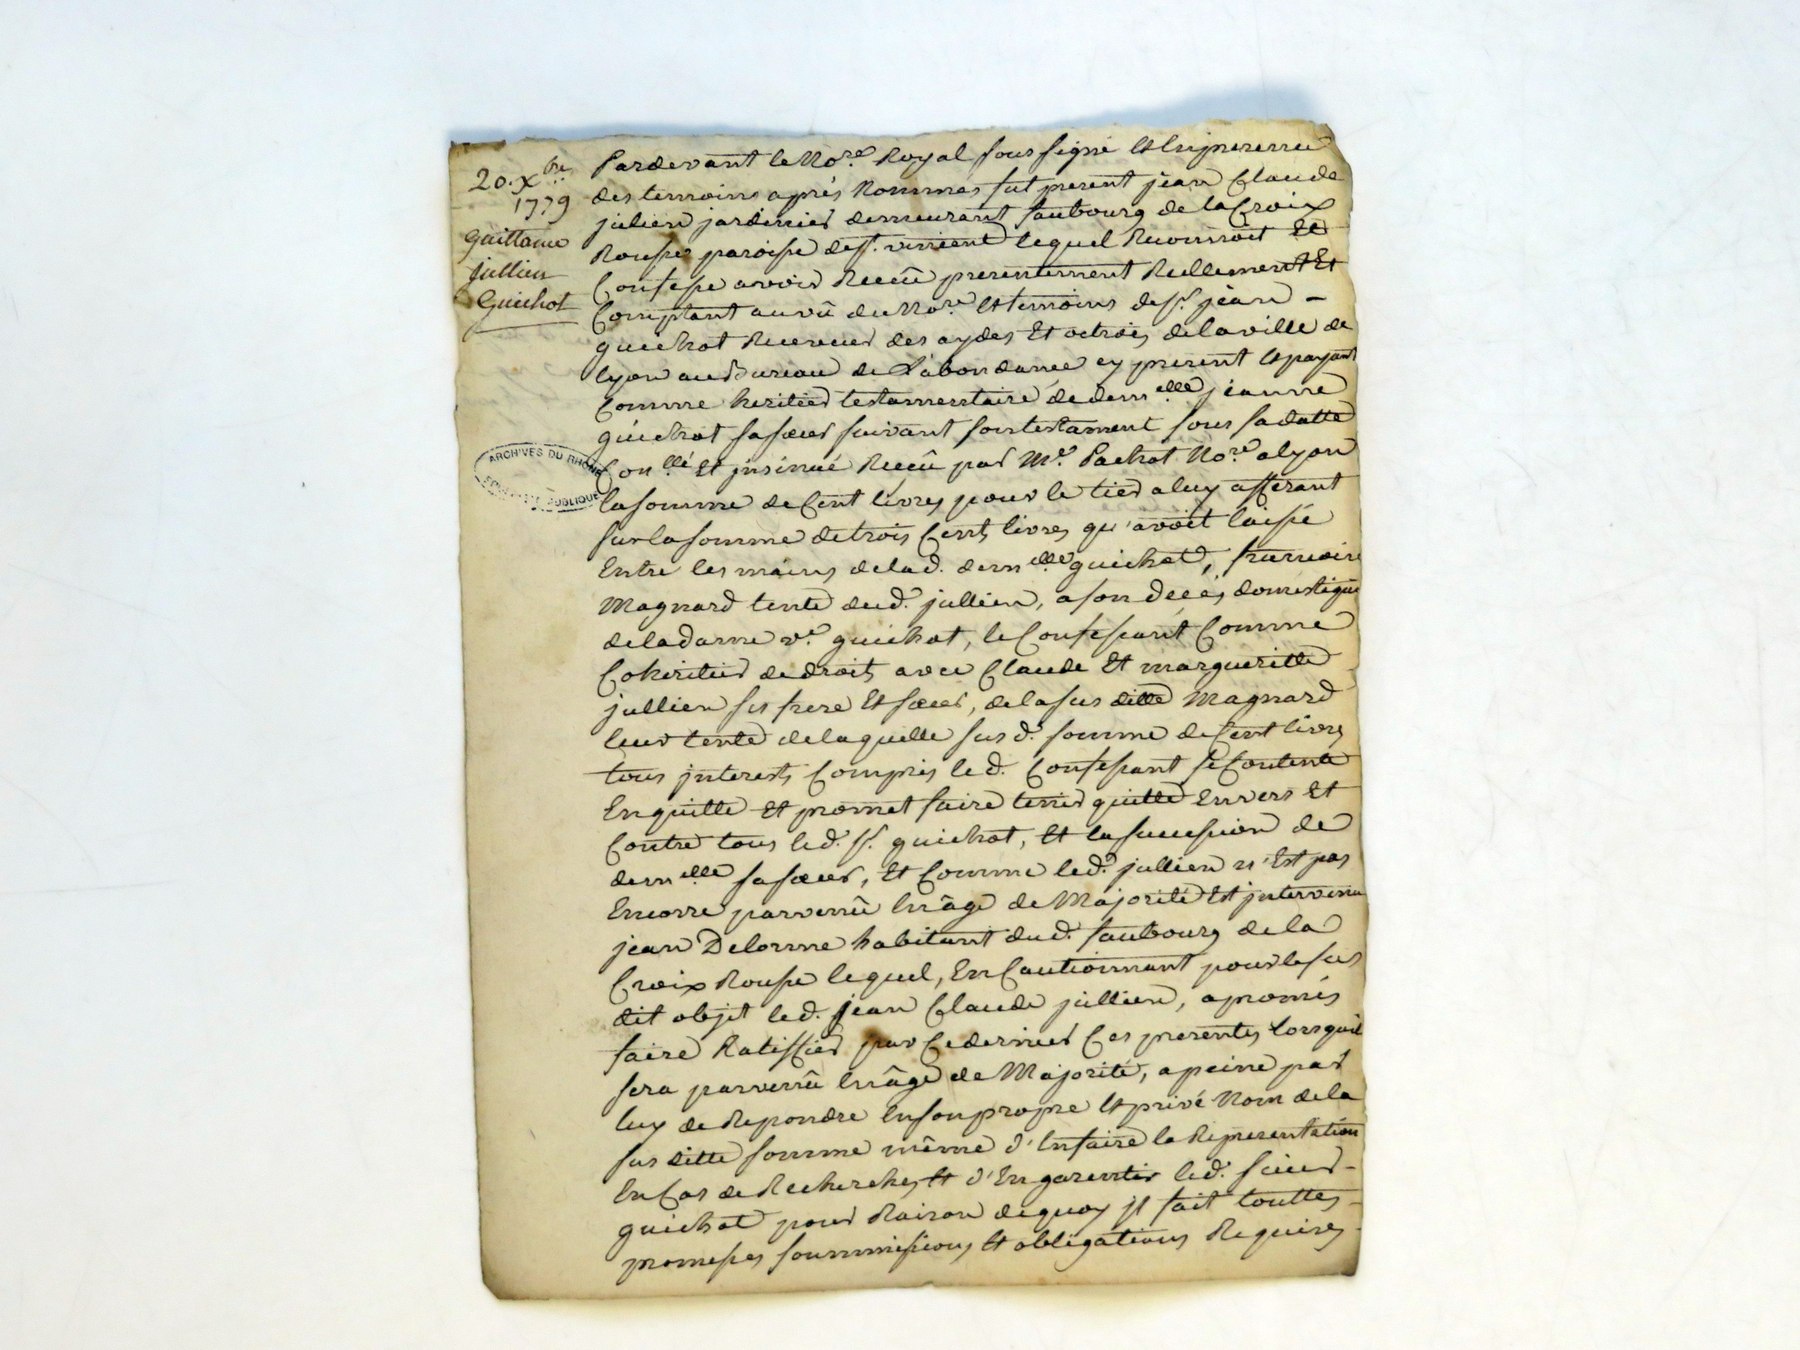 20. Xbre
1779
Quittance
Jullien
Guichot
ARCHIVES DU RHÔNE
PUBLIQUE
Pardevant le No.re Royal soussigné Et En presence
des temoins aprés Nommes fut present jean Claude
julien jardinier demeurant faubourg de la Croix
Rousse paroisse de st. vincent lequel Reconnoit Et
Confesse avoir Receü presentement Reellement Et
Comptant au vü du No.re Et temoins de sr. jean -
guichot Receveur des aydes Et octrois de la ville de
lyon au Bureau de L'abondance cy present Et payant
Comme heritier testamentaire de dem.elle jeanne
guichot sa sœur suivant son testament sous sa datte
Con.llé Et jnsinué Receü par Me. Pachot No.re a lyon
la somme de Cent livres pour le tier a luy afferant
sur la somme de trois Cents livres qu'avoit laissé
Entre les mains de lad. dem.elle guichot,
Magnard tente dud. jullien, a son Decés domestique
de la dame ve. guichot, le Confessant Comme
Cohéritier de droit avec Claude Et margueritte
jullien ses frere Et sœur, de la sus ditte Magnard
leur tente de laquelle sus d. somme de Cent livres
tous jnterests Compris led. Confessant se Contente
En quitte Et promet faire tenir quitte Envers Et
Contre tous led. sr. guichot, Et la succession de
dem.elle sa sœur, Et Comme led. jullien n'Est pas
Encorre parvenü En âge de Majorité Est jntervenu
jean Delorme habitant dud. faubourg de la
Croix Rousse lequel, En Cautionnant pour le sus
dit objet led. jean Claude jullien, a promis
faire Ratiffier par Ce dernier Ces presentes lorsquil
sera parvenü En âge de Majorité, a peine par
luy de Repondre En son propre Et privé Nom de la
sus ditte somme même d'En faire la Representation
En Cas de Recherches Et d'En garentir led. sieur -
guichot pour Raison de quoy jl fait touttes -
promesses soummissions Et obligations Requises